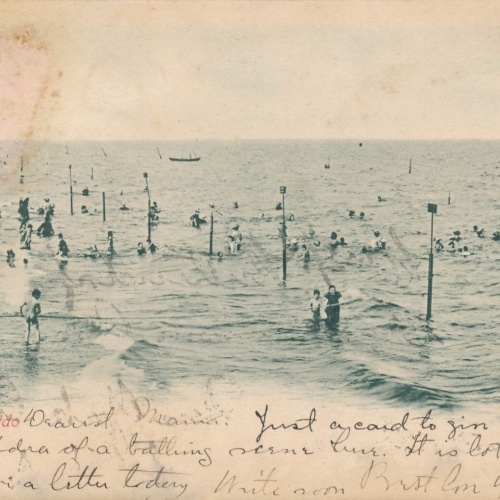 ido "Dearest Mama: Just a card to giv
idra of a bathing scene here. It is lot
a letter today Write soon Best Lov